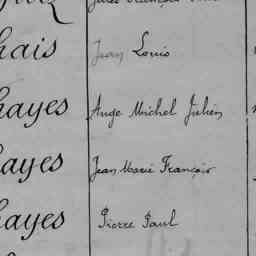 hais Jean Louis
hayes Ange Michel Julien
hayes Jean Marie François
hayes Pierre Paul